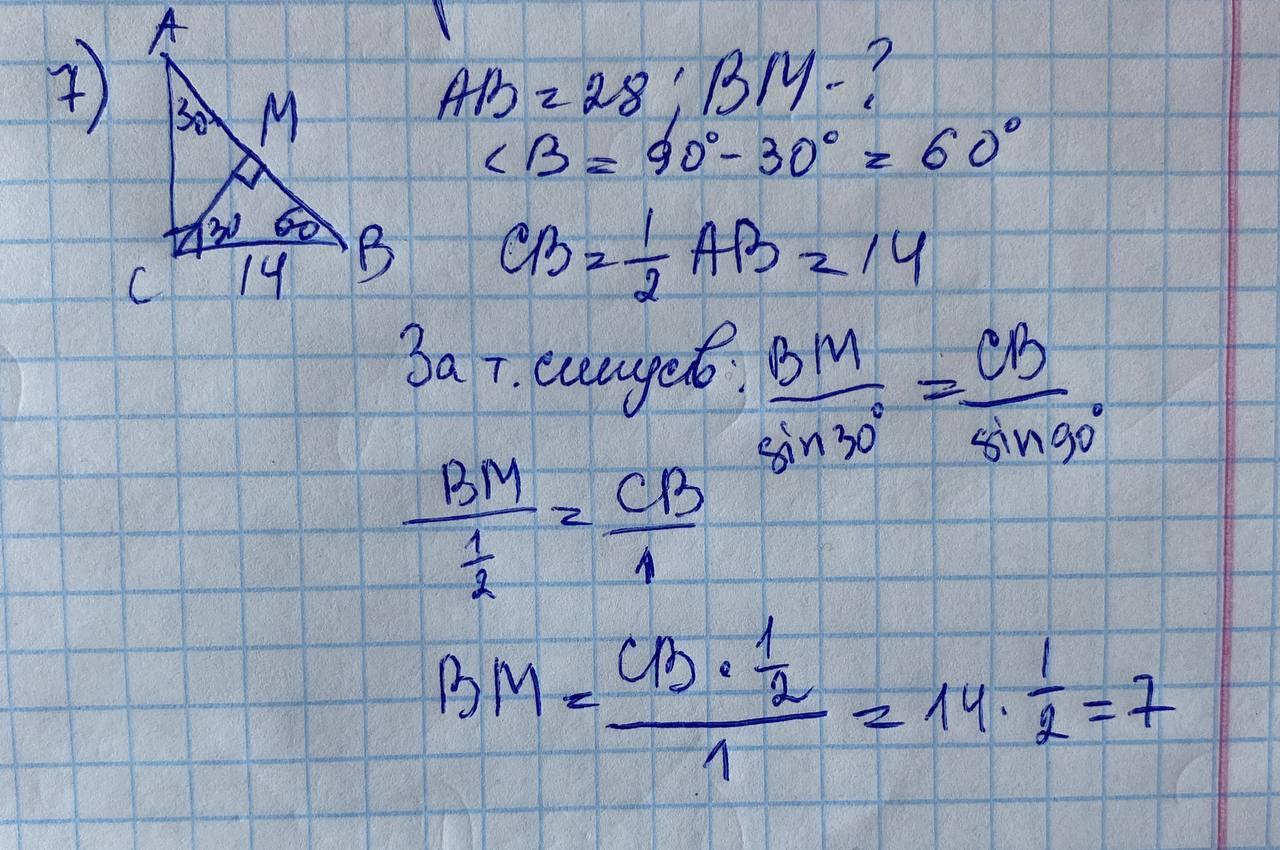 7)
A
30
M
30
60
C
14
B
AB = 28; BM - ?
<B = 90° - 30° = 60°
CB = 1/2 AB = 14
За т. синусів: BM/sin30° = CB/sin90°
BM/(1/2) = CB/1
BM = (CB · 1/2)/1 = 14 · 1/2 = 7